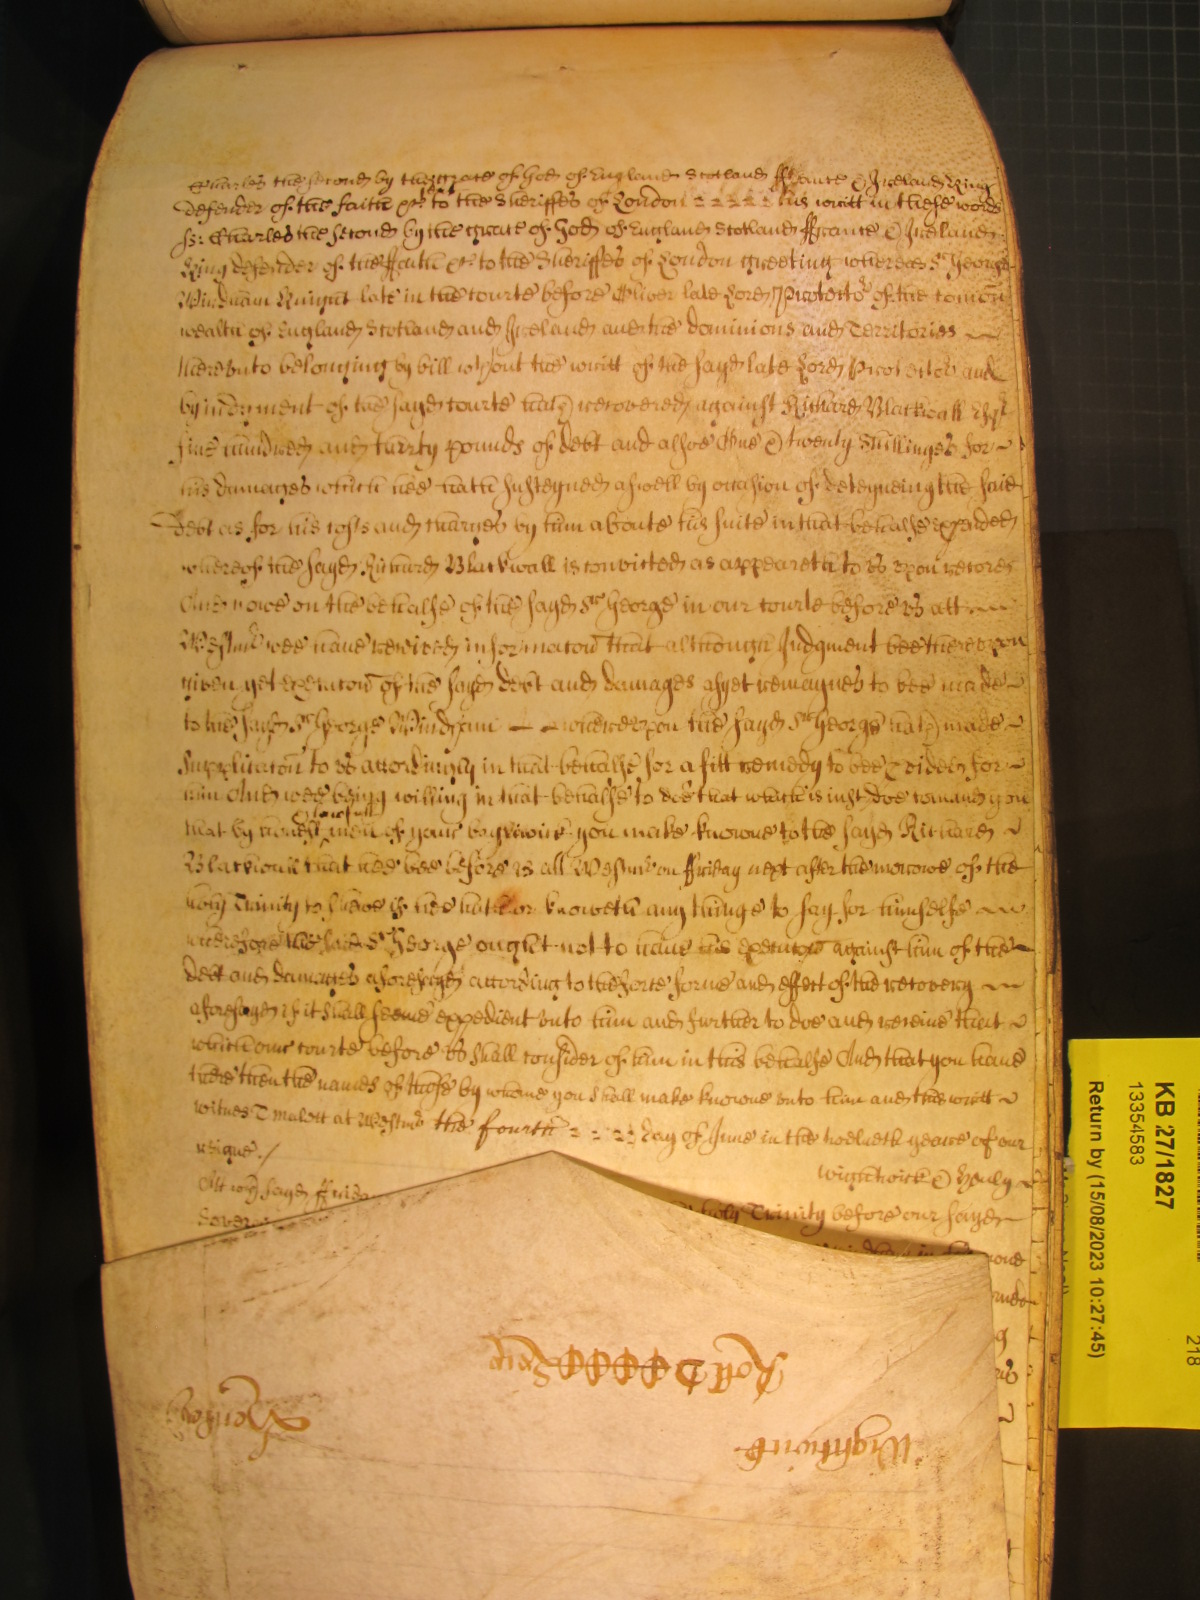 Charles the second by the grace of God of England Scotland ffrance & Ireland King
defender of the faith &c to the Sheriffes of London his writt in these words
ss: Charles the second by the grace of God of England Scotland ffrance & Ireland
King defender of the ffaith &c to the Sheriffes of London greeting whereas Sr George
Windham Knight late in the Courte before Oliver late Lord Protector of the Comon
wealth of England Scotland and Ireland and the dominions and Territories
thereunto belonging by bill wthout the writt of the sayd late Lord Protector and
by iudgment of the sayd Courte hath recovered against Richard Blackwall Esqr
five hundred and thirty pounds of debt and alsoe One & twenty shillinges for
his damages which hee hath susteyned aswell by occasion of deteyneing the said
debt as for his costs and charges by him about his suite in that behalfe expended
whereof the sayd Richard Blackwall is convicted as appeareth to us upon record
And nowe on the behalfe of the sayd Sr George in our Courte before us att
Westmr wee have received informacon that although Judgment bee thereupon
given yet execucon of the sayd debt and damages as yet remaynes to bee made
to the sayd Sr George Windham whereupon the sayd Sr George hath made
supplicacon to us accordingly in that behalfe for a fitt remedy to bee provided for
him And wee being willing in that behalfe to doe that which is iust doe comand you
lawfull
that by honest men of your baylywick you make knowne to the sayd Richard
Blackwall that hee bee before us att Westmr on ffriday next after the morrowe of the
holy Trinity to shewe if hee hath or knoweth any thinge to say for himselfe
wherefore the said Sr George ought not to have his execucon against him of the
debt and damages aforesayd according to the force forme and effect of the recovery
aforesayd if it shall seeme expedient unto him and further to doe and receive that
which our Courte before us shall consider of him in this behalfe And that you have
there then the names of those by whome you shall make knowne unto him and this writt
witnes T Malett at Westmr the fourth day of June in the twelveth yeare of our
reigne /
Wightwick & Henly
Att wch sayd ffrid
holy Trinity before our sayd
Sover
Roll
Wightwick